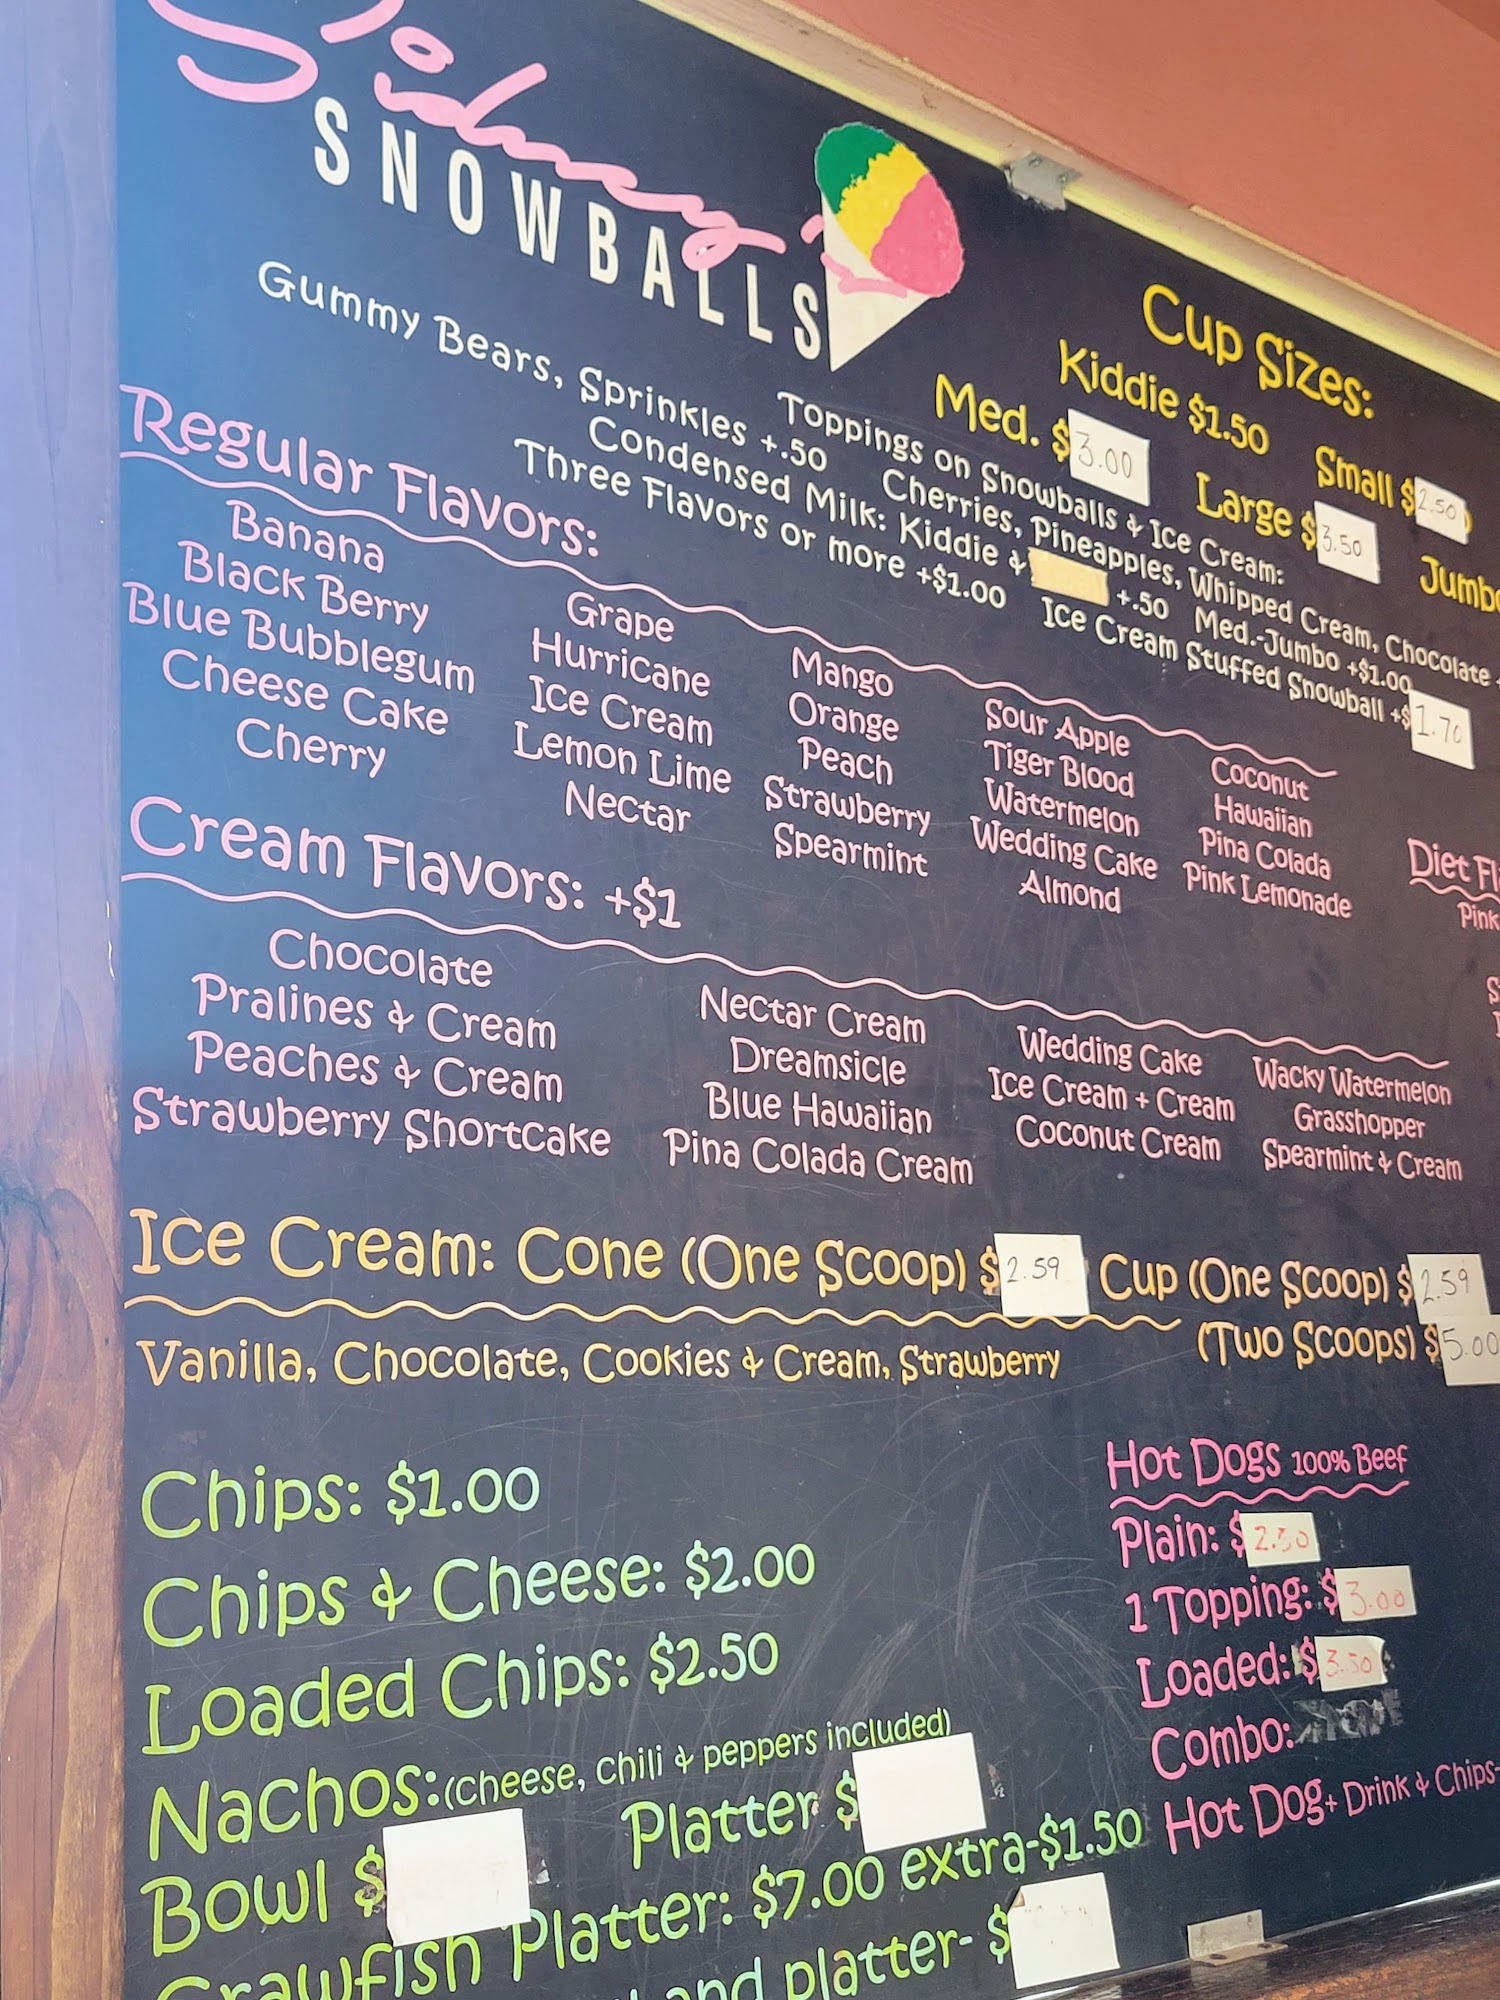 Sidney's
SNOWBALLS
Cup Sizes:
Kiddie $1.50 Small $2.50
Med. $3.00 Large $3.50
Toppings on Snowballs & Ice Cream:
Gummy Bears, Sprinkles +.50 Cherries, Pineapples, Whipped Cream, Chocolate
Condensed Milk: Kiddie & +.50 Med.-Jumbo +$1.00
Three Flavors or more +$1.00 Ice Cream Stuffed Snowball +$1.70
Regular Flavors:
Banana
Black Berry
Blue Bubblegum
Cheese Cake
Cherry
Grape
Hurricane
Ice Cream
Lemon Lime
Nectar
Mango
Orange
Peach
Strawberry
Spearmint
Sour Apple
Tiger Blood
Watermelon
Wedding Cake
Almond
Coconut
Hawaiian
Pina Colada
Pink Lemonade
Diet
Pink
Cream Flavors: +$1
Chocolate
Pralines & Cream
Peaches & Cream
Strawberry Shortcake
Nectar Cream
Dreamsicle
Blue Hawaiian
Pina Colada Cream
Wedding Cake
Ice Cream + Cream
Coconut Cream
Wacky Watermelon
Grasshopper
Spearmint & Cream
Ice Cream: Cone (One Scoop) $2.59 Cup (One Scoop) $2.59
(Two Scoops) $5.00
Vanilla, Chocolate, Cookies & Cream, Strawberry
Chips: $1.00
Chips & Cheese: $2.00
Loaded Chips: $2.50
Nachos: (cheese, chili & peppers included)
Bowl $ Platter $
Crawfish Platter: $7.00 extra-$1.50
and platter- $
Hot Dogs 100% Beef
Plain: $2.50
1 Topping: $3.00
Loaded: $3.50
Combo:
Hot Dog+ Drink & Chips-